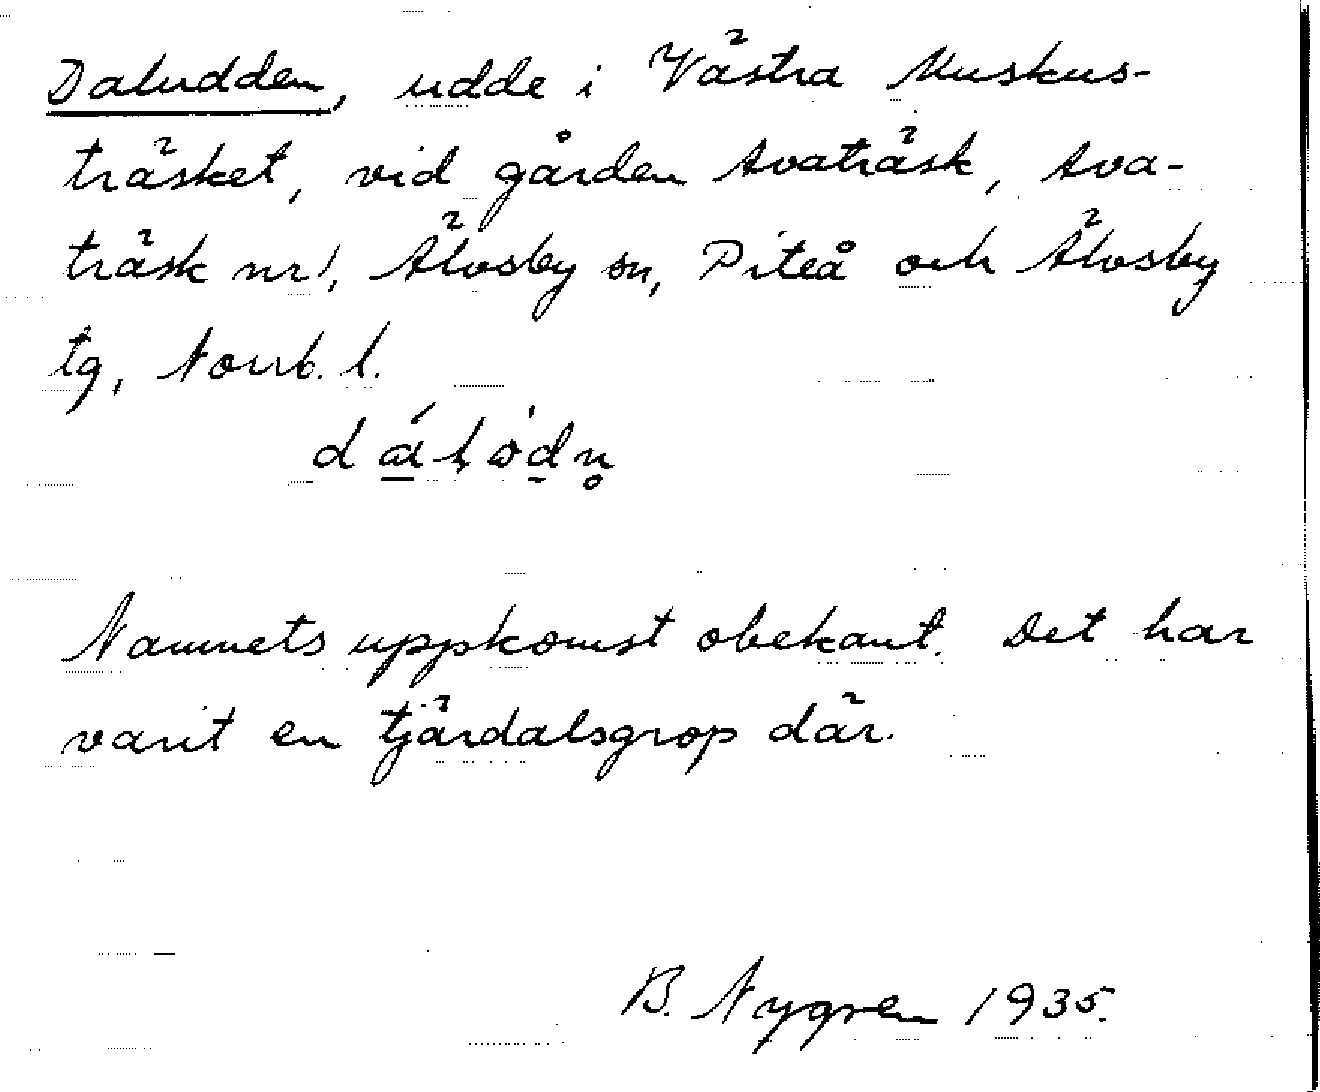 Daludden, udde i Västra Muskus-
träsket, vid gården Avaträsk, Ava-
träsk nr 1, Älvsby sn, Piteå och Älvsby
tg, Norrb. l.
Namnets uppkomst obekant. Det har
varit en tjärdalsgrop där.
B. Nygren 1935.